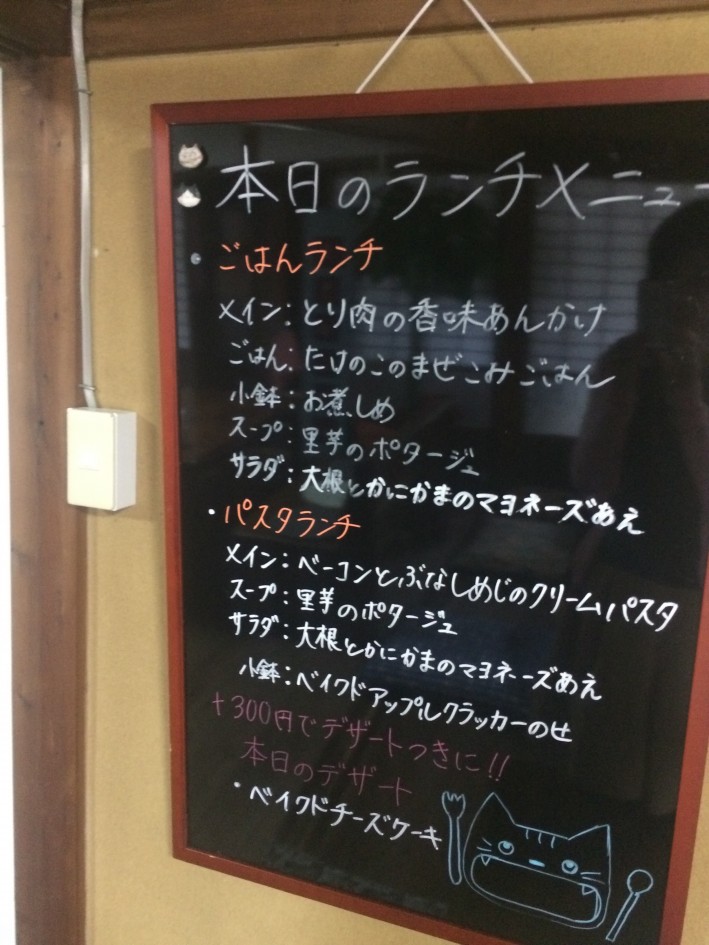 本日のランチメニュー
・ごはんランチ
メイン:とり肉の香味あんかけ
ごはん:たけのこのまぜこみごはん
小鉢:お煮しめ
スープ:里芋のポタージュ
サラダ:大根とかにかまのマヨネーズあえ
・パスタランチ
メイン:ベーコンとぶなしめじのクリームパスタ
スープ:里芋のポタージュ
サラダ:大根とかにかまのマヨネーズあえ
小鉢:ベイクドアップルクラッカーのせ
+300円でデザートつきに!!
本日のデザート
・ベイクドチーズケーキ